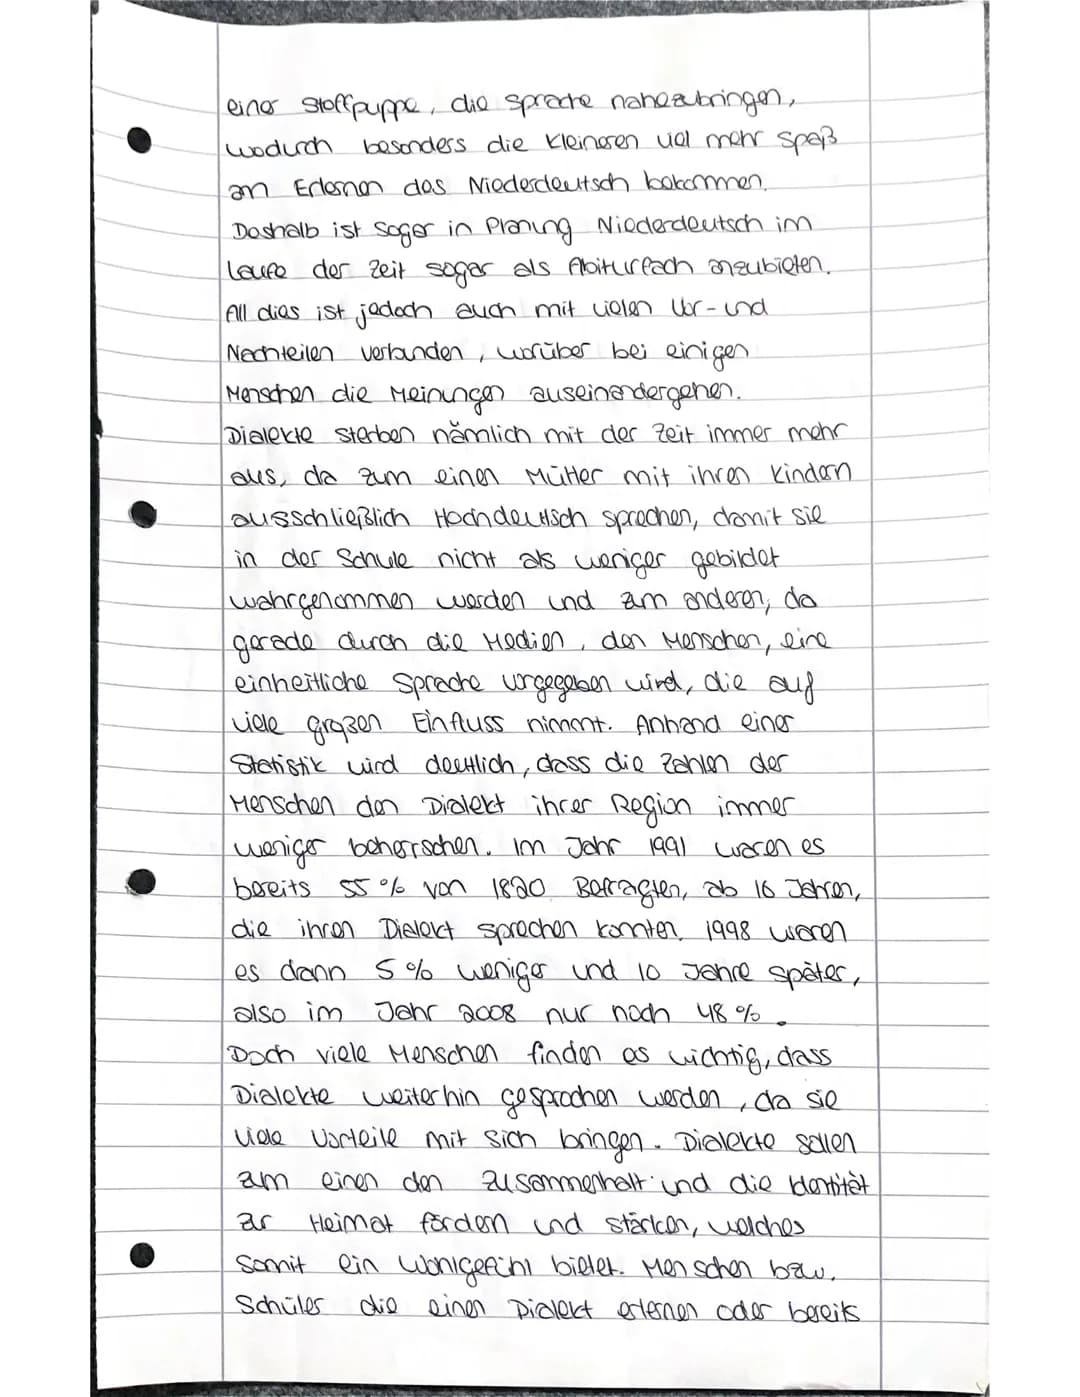 einer Stoffpuppe, die Sprache nahezubringen,
wodurch besonders die Kleineren viel mehr Spaß
am Erlernen das Niederdeutsch bekommen.
Deshalb ist sogar in Planung Niederdeutsch im
Laufe der Zeit sogar als Abiturfach anzubieten.
All dies ist jedoch auch mit vielen Vor-und
Nachteilen verbunden, worüber bei einigen
Menschen die Meinungen auseinandergehen.
Dialekte sterben nämlich mit der Zeit immer mehr
aus, da zum einen Mütter mit ihren Kindern
ausschließlich Hochdeutsch sprechen, damit sie
in der Schule nicht als weniger gebildet
wahrgenommen werden und zum anderen, da
gerade durch die Medien, den Menschen, eine
einheitliche Sprache vorgegeben wird, die auf
viele großen Einfluss nimmt. Anhand einer
Statistik wird deutlich, dass die Zahlen der
Menschen den Dialekt ihrer Region immer
weniger beherrschen. Im Jahr 1991 waren es
bereits 55 % von 1820 Befragten, ab 16 Jahren,
die ihren Dialekt sprechen konnten. 1998 waren
es dann 5 % weniger und 10 Jahre später,
also im Jahr 2008 nur noch 48 %.
Doch viele Menschen finden es wichtig, dass
Dialekte weiterhin gesprochen werden, da sie
viele Vorteile mit sich bringen. Dialekte sollen
zum einen den Zusammenhalt und die Identität
zur Heimat fördern und stärken, welches
somit ein Wohlgefühl bietet. Menschen bzw.
Schüler die einen Dialekt erlernen oder bereits